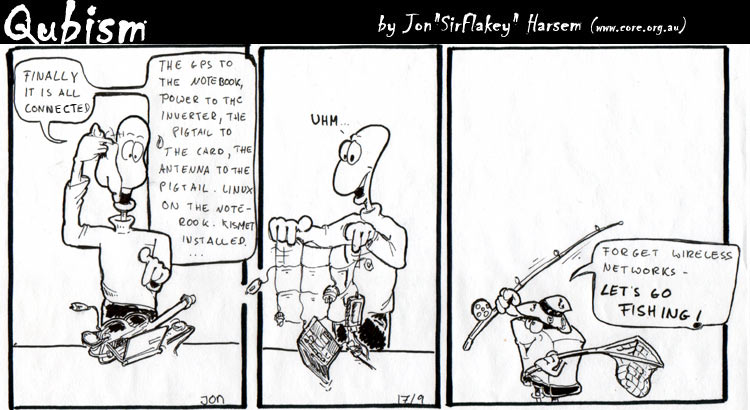 Qubism
by Jon"SirFlakey" Harsem (www.core.org.au)
FINALLY
IT IS ALL
CONNECTED
THE GPS TO
THE NOTEBOOK,
POWER TO THE
INVERTER, THE
PIGTAIL TO
THE CARD, THE
ANTENNA TO THE
PIGTAIL. LINUX
ON THE NOTE-
BOOK. KISMET
INSTALLED.
...
JON
UHM...
17/9
FORGET WIRELESS
NETWORKS -
LET'S GO
FISHING!